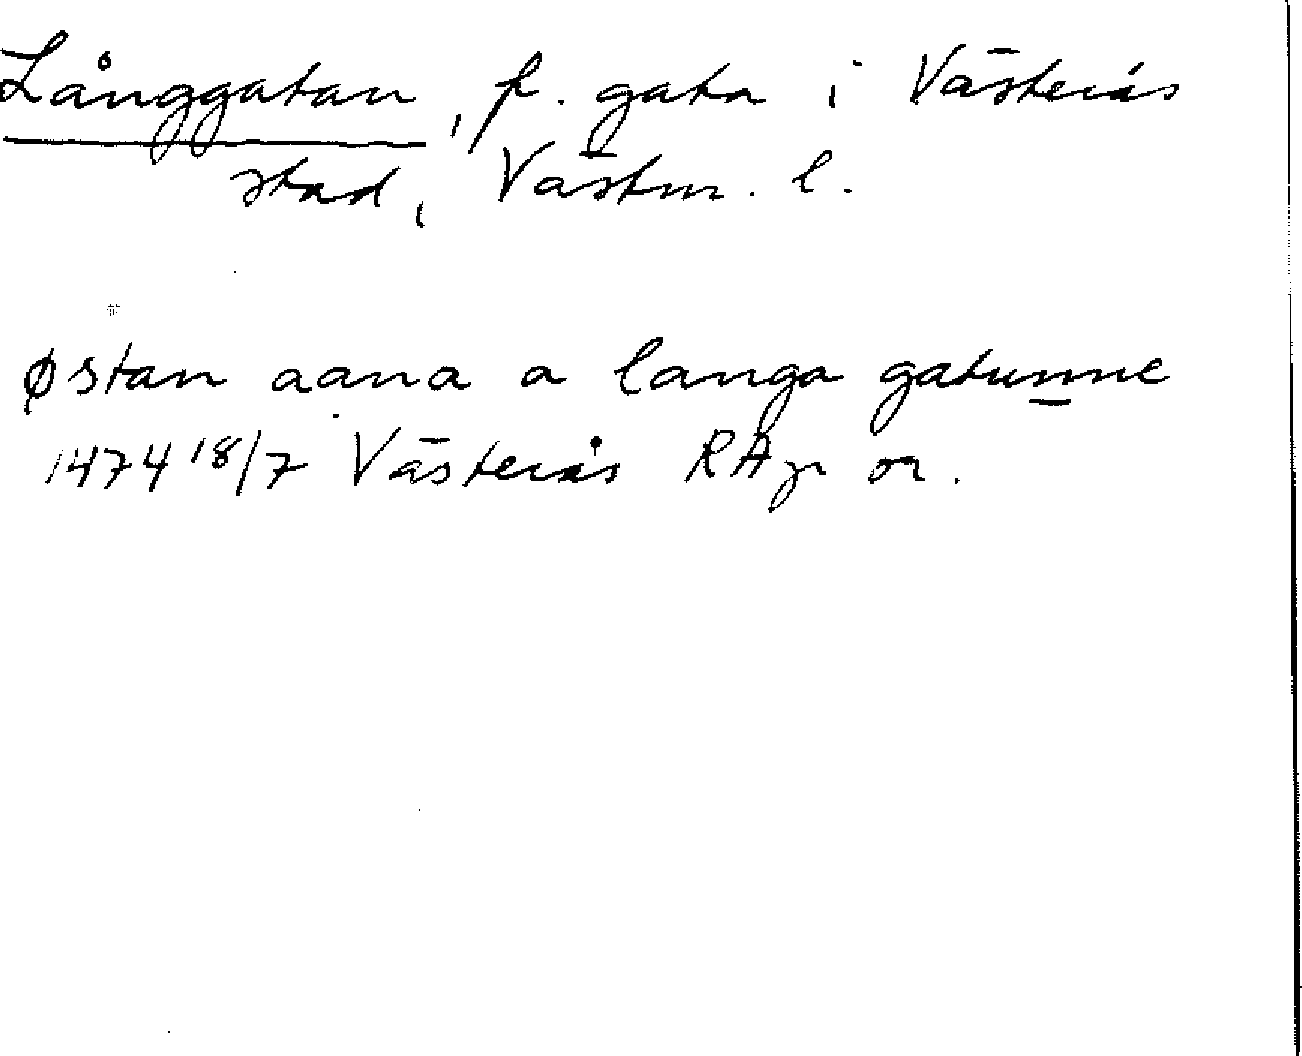 Långgatan, f. gata i Västerås
stad, Västm. l.
østan aana a langa gatunne
1474 18/7 Västerås RAp or.